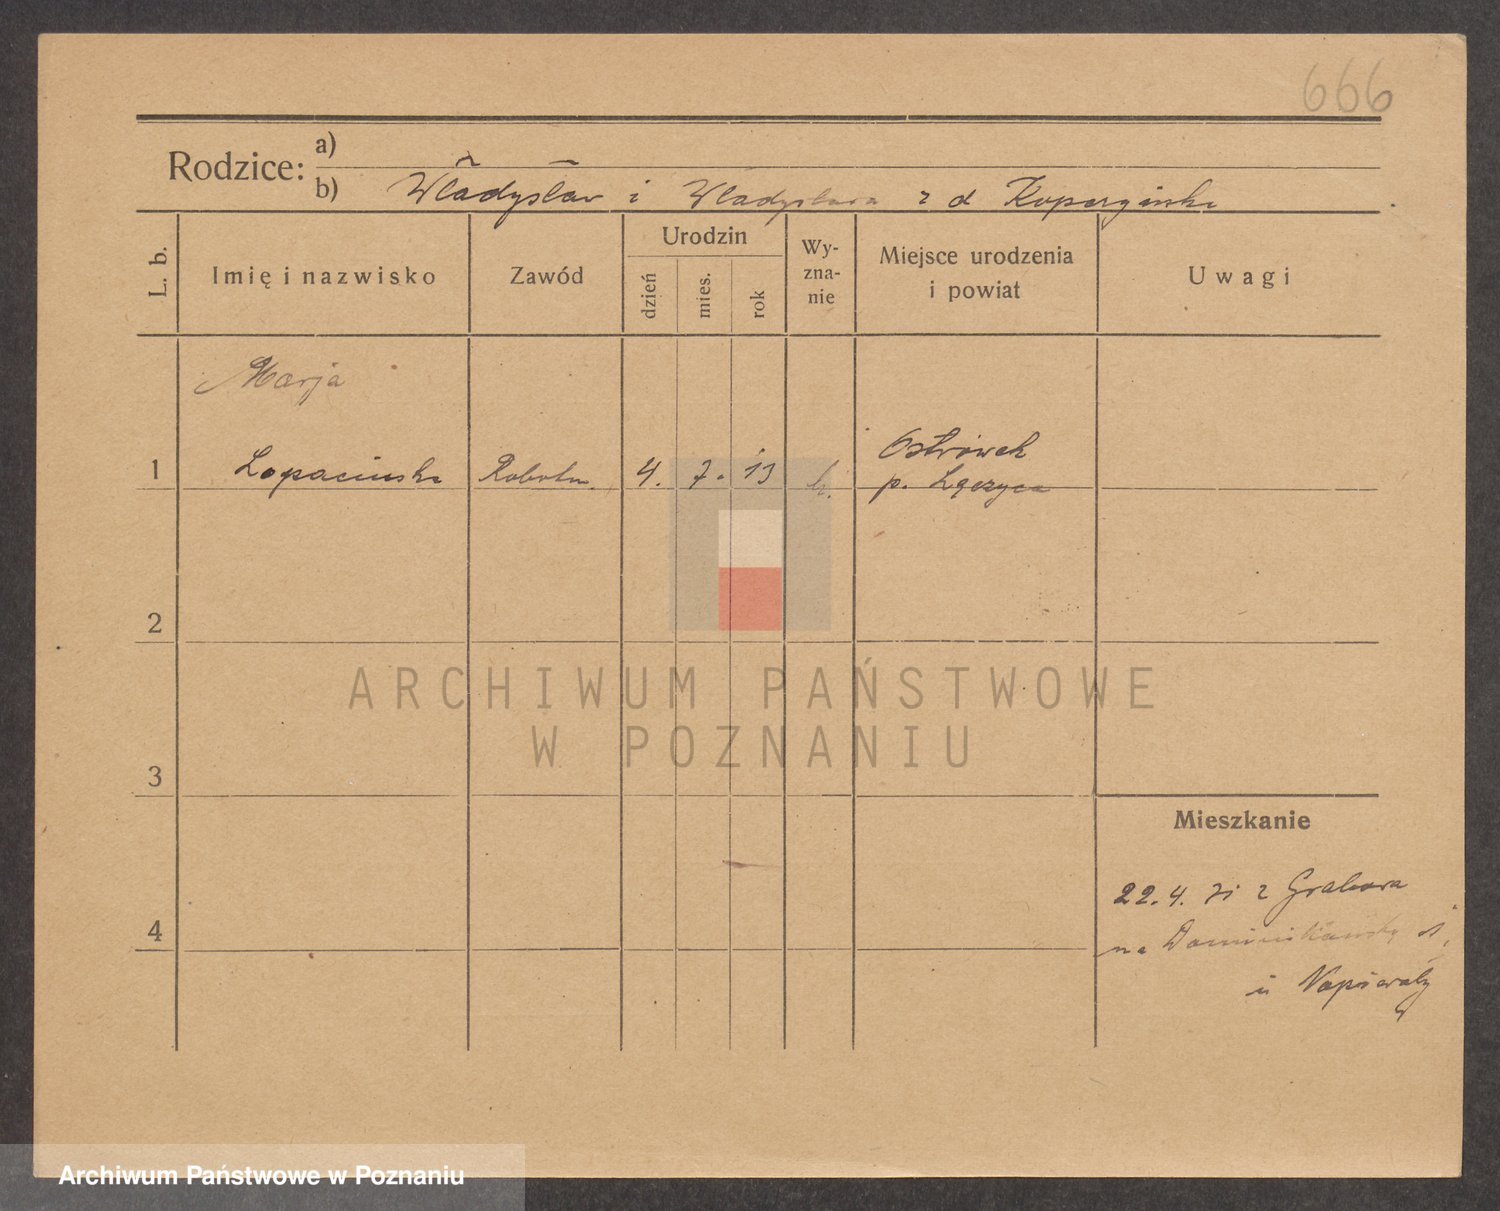 666
Rodzice:
a)
b) Władysław i Władysława z d
L. b.
Imię i nazwisko
Zawód
Urodzin
dzień
mies.
rok
Wy-
zna-
nie
Miejsce urodzenia
i powiat
Uwagi
Marja
1 Łopacińska Robotn. 4. 7. 13
Ostrówek
p. Łęczyca
2
3
4
Mieszkanie
22.4. z Grabowa
na Dominikańską
u
ARCHIWUM PAŃSTWOWE
W POZNANIU
Archiwum Państwowe w Poznaniu